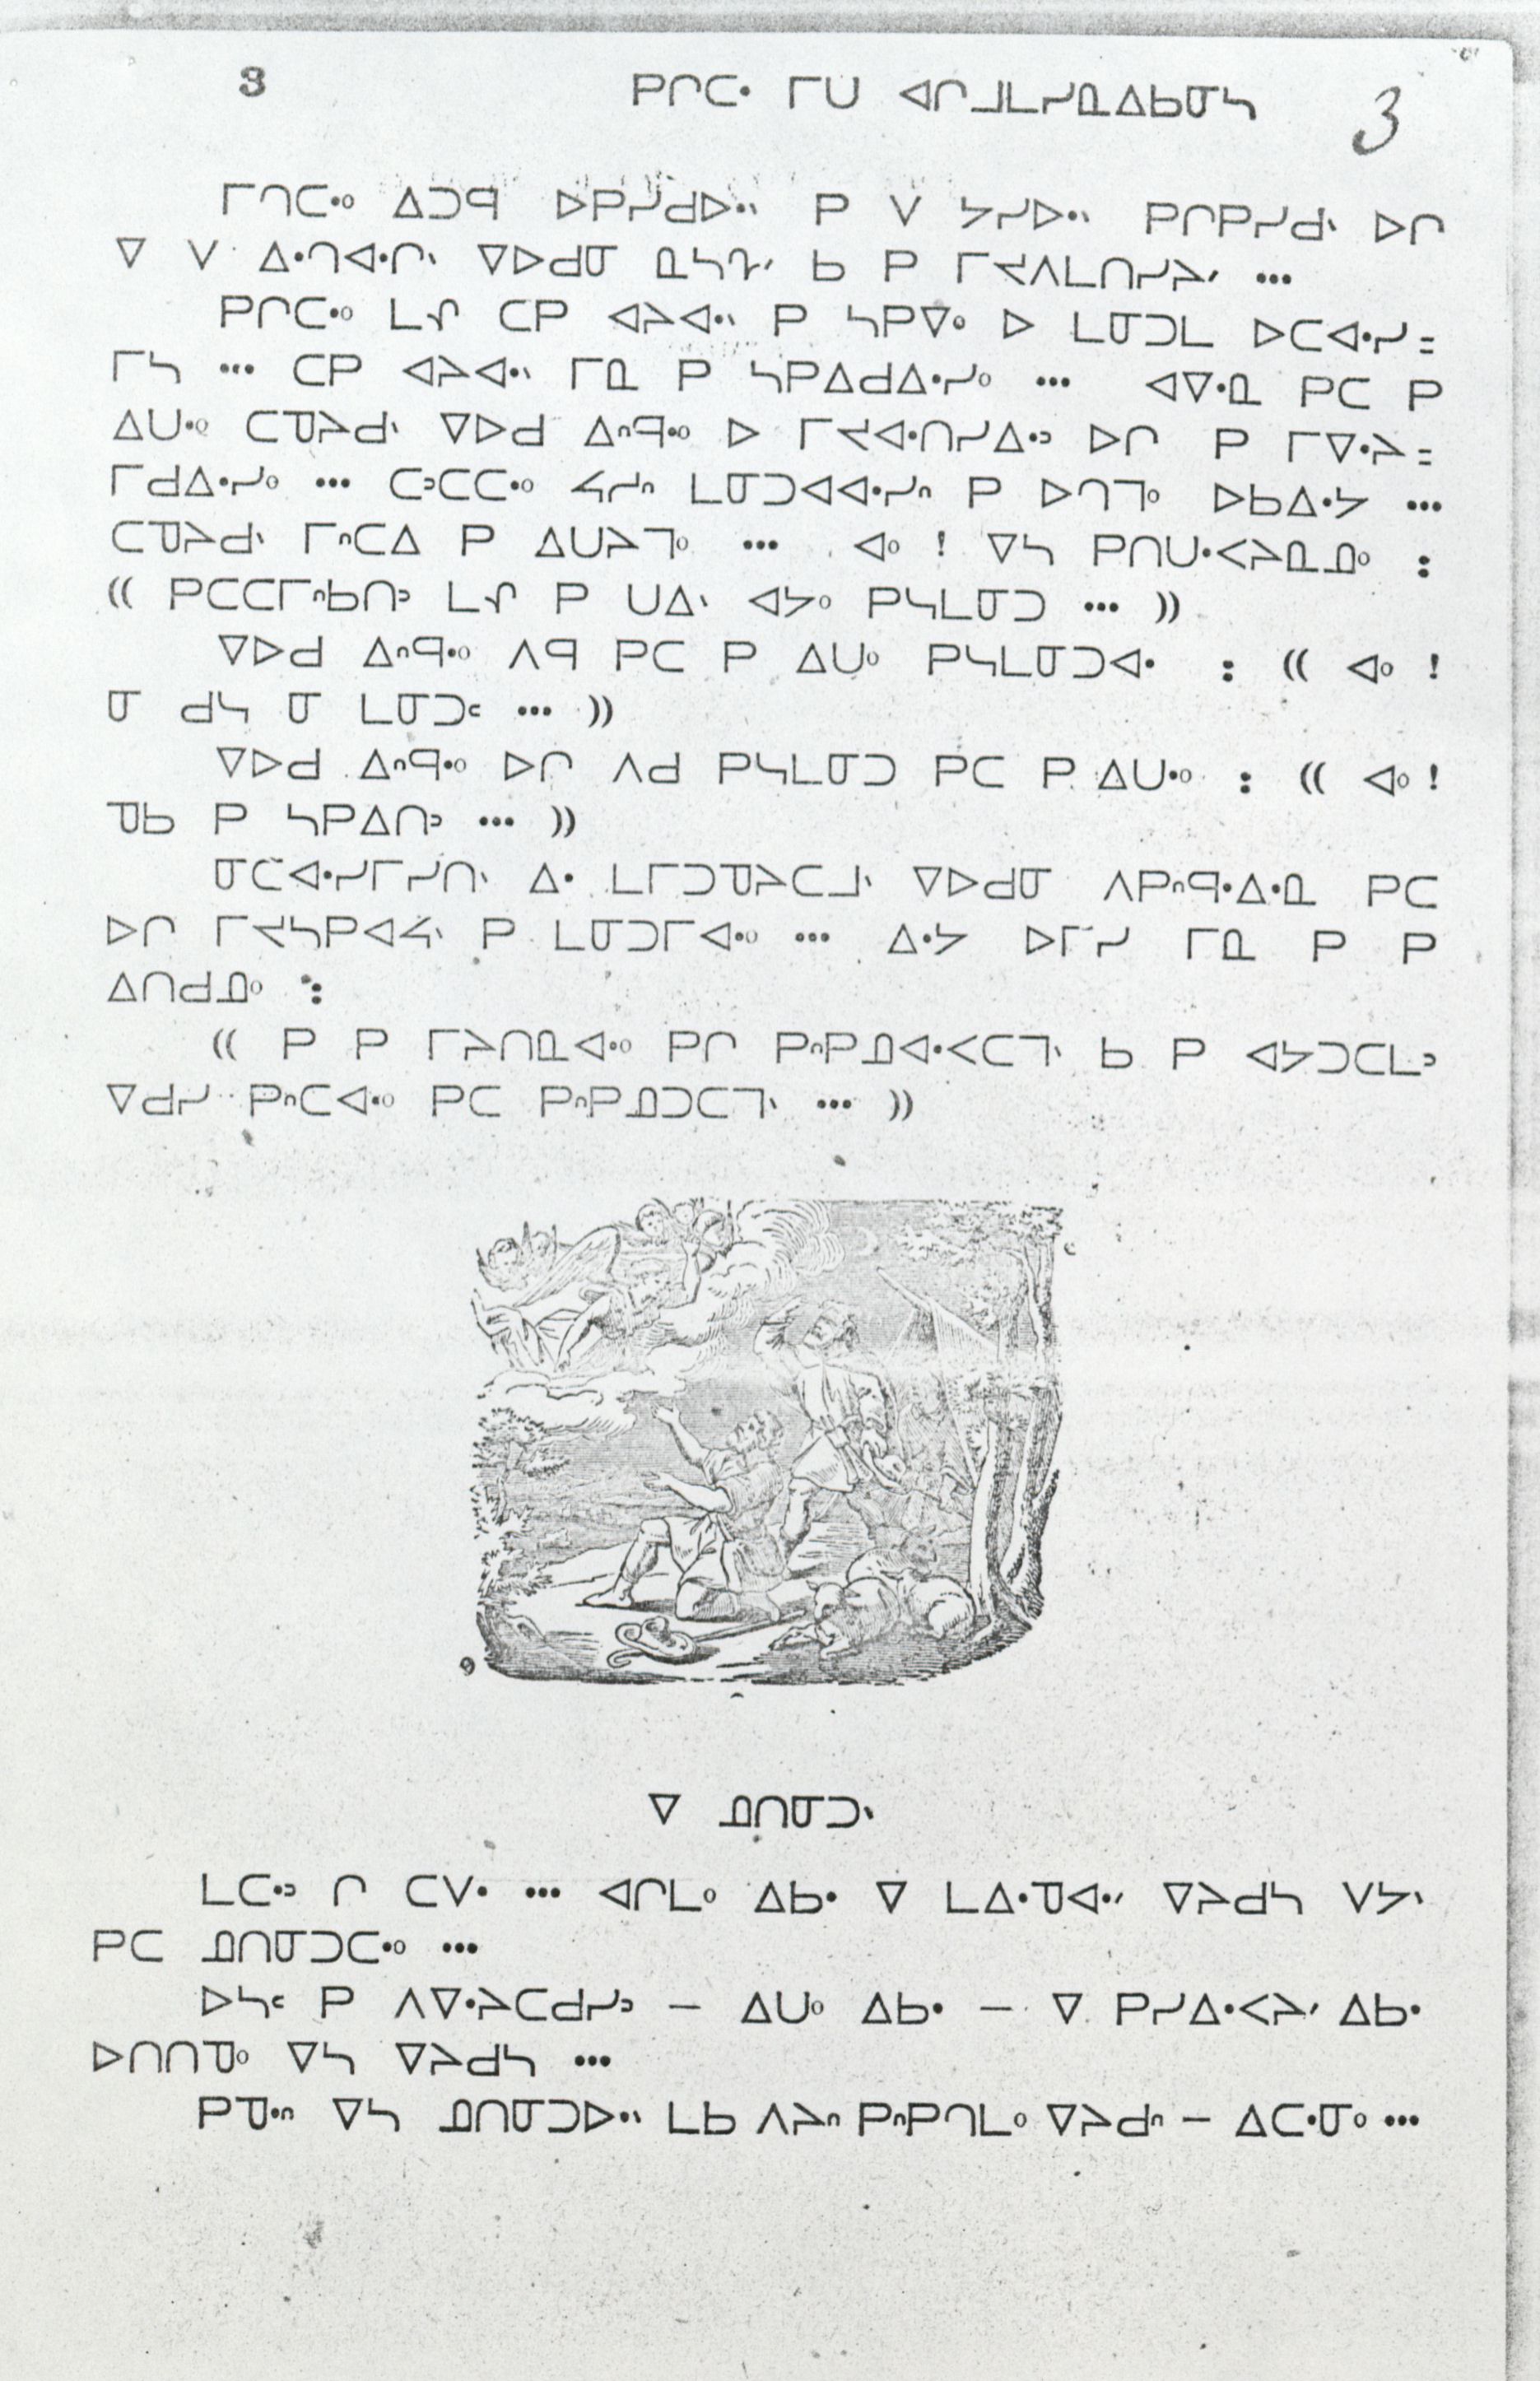 3 ᑭᒋᑕᐧ ᒥᑌ ᐊᒋᒧᒪᓯᓇᐃᑲᓂᓴ 3
ᒥᒋᑕᐧᐤ ᐃᑐᑫ ᐅᑭᓯᑯᐅᐧᐠ ᑭ ᐯ ᔦᓯᐅᐧᐠ ᑭᒋᑭᓯᑯᐠ ᐅᒋ
ᐁ ᐯ ᐃᐧᒋᐊᐧᒋᐠ ᐁᐅᑯᓂ ᓇᓴ ᑲ ᑭ ᒥᔪᐱᒪᑎᓯᔨᐟ ...
ᑭᒋᑕᐧᐤ ᒪᔑ ᑕᑭ ᐊᔨᐊᐧᐠ ᑭ ᓴᑭᐁᐧᐤ ᐅ ᒪᓂᑐᒪ ᐅᑕᐊᐧᓯ=
ᒥᓴ ... ᑕᑭ ᐊᔨᐊᐧᐠ ᒥᓇ ᑭ ᓴᑭᐃᑯᐃᐧᓯᐤ ... ᐊᐁᐧᓇ ᑭᑕ ᑭ
ᐃᑌᐧᐤ ᑕᓀᔨᑯᐠ ᐁᐅᑯ ᐃᐢᑫᐧᐤ ᐅ ᒥᔪᐊᐧᑎᓯᐃᐧᐣ ᐅᒋ ᑭ ᒥᐁᐧᔨ=
ᒥᑯᐃᐧᓯᐤ ... ᑕᐣᑕᑕᐧᐤ ᓵᓯᐢ ᒪᓂᑐᐊᐊᐧᓯᐢ ᑭ ᐅᑎᒣᐤ ᐅᑲᐃᐧᔭ ...
ᑕᓀᔨᑯᐠ ᒥᐢᑕᐃ ᑭ ᐃᑌᔨᒣᐤ ... ᐊᐤ ! ᐁᓴ ᑭᑎᑌᐧᐸᔨᓇᓄᐤ :
(( ᑭᑕᑕᒥᐢᑲᑎᐣ ᒪᔑ ᑭ ᑌᐃᐠ ᐊᔭᐤ ᑭᓴᒪᓂᑐ ... ))
ᐁᐅᑯ ᐃᐢᑫᐧᐤ ᐱᑫ ᑭᑕ ᑭ ᐃᑌᐤ ᑭᓴᒪᓂᑐᐊᐧ : (( ᐊᐤ !
ᓂ ᑯᓴ ᓂ ᒪᓂᑐᑦ ... ))
ᐁᐅᑯ ᐃᐢᑫᐧᐤ ᐅᒋ ᐱᑯ ᑭᓴᒪᓂᑐ ᑭᑕ ᑭ ᐃᑌᐧᐤ : (( ᐊᐤ !
ᓀᑲ ᑭ ᓴᑭᐃᑎᐣ ... ))
ᓂᑕᐊᐧᓯᒥᓯᑎᐠ ᐃᐧ ᒪᒥᑐᓀᔨᑕᒧᐠ ᐁᐅᑯᓂ ᐱᑭᐢᑫᐧᐃᐧᓇ ᑭᑕ
ᐅᒋ ᒥᔪᓴᑭᐊᔦᐠ ᑭ ᒪᓂᑐᒥᐊᐧᐤ ... ᐃᐧᔭ ᐅᒥᓯ ᒥᓇ ᑭ ᑭ
ᐃᑎᑯᓄᐤ :
(( ᑭ ᑭ ᒥᔨᑎᓇᐊᐧᐤ ᑭᒋ ᑭᐢᑭᓄᐊᐧᐸᑕᒣᐠ ᑲ ᑭ ᐊᔭᑐᑕᒪᐣ
ᐁᑯᓯ ᑭᐢᑕᐊᐧᐤ ᑭᑕ ᑭᐢᑭᓄᑐᑕᒣᐠ ... ))
ᐁ ᓄᑎᓂᑐᐠ
ᒪᑕᐧᐣ ᒋ ᑕᐯᐧ ... ᐊᒋᒪᐤ ᐃᑲᐧ ᐁ ᒪᐃᐧᓀᐊᐧᐟ ᐁᔨᑯᓴ ᐯᔭᐠ
ᑭᑕ ᓄᑎᓂᑐᑕᐧᐤ ...
ᐅᓴᑦ ᑭ ᐱᐁᐧᔨᑕᑯᓯᐣ — ᐃᑌᐤ ᐃᑲᐧ — ᐁ ᑭᓯᐃᐧᐸᔨᐟ ᐃᑲᐧ
ᐅᑎᑎᓀᐤ ᐁᓴ ᐁᔨᑯᓴ ...
ᑭᓀᐧᐢ ᐁᓴ ᓄᑎᓂᑐᐅᐧᐠ ᒪᑲ ᐱᔨᐢ ᑭᐢᑭᒋᒪᐤ ᐁᔨᑯᐢ — ᐃᑕᐧᓂᐤ ...